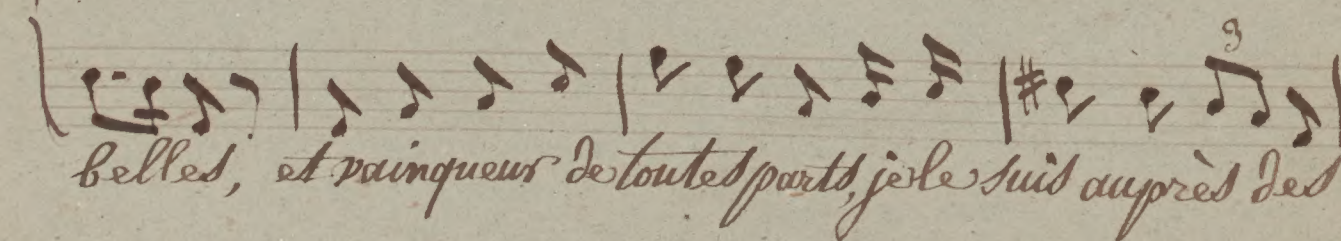 3
belles, et vainqueur de toutes parts, je le suis auprès des